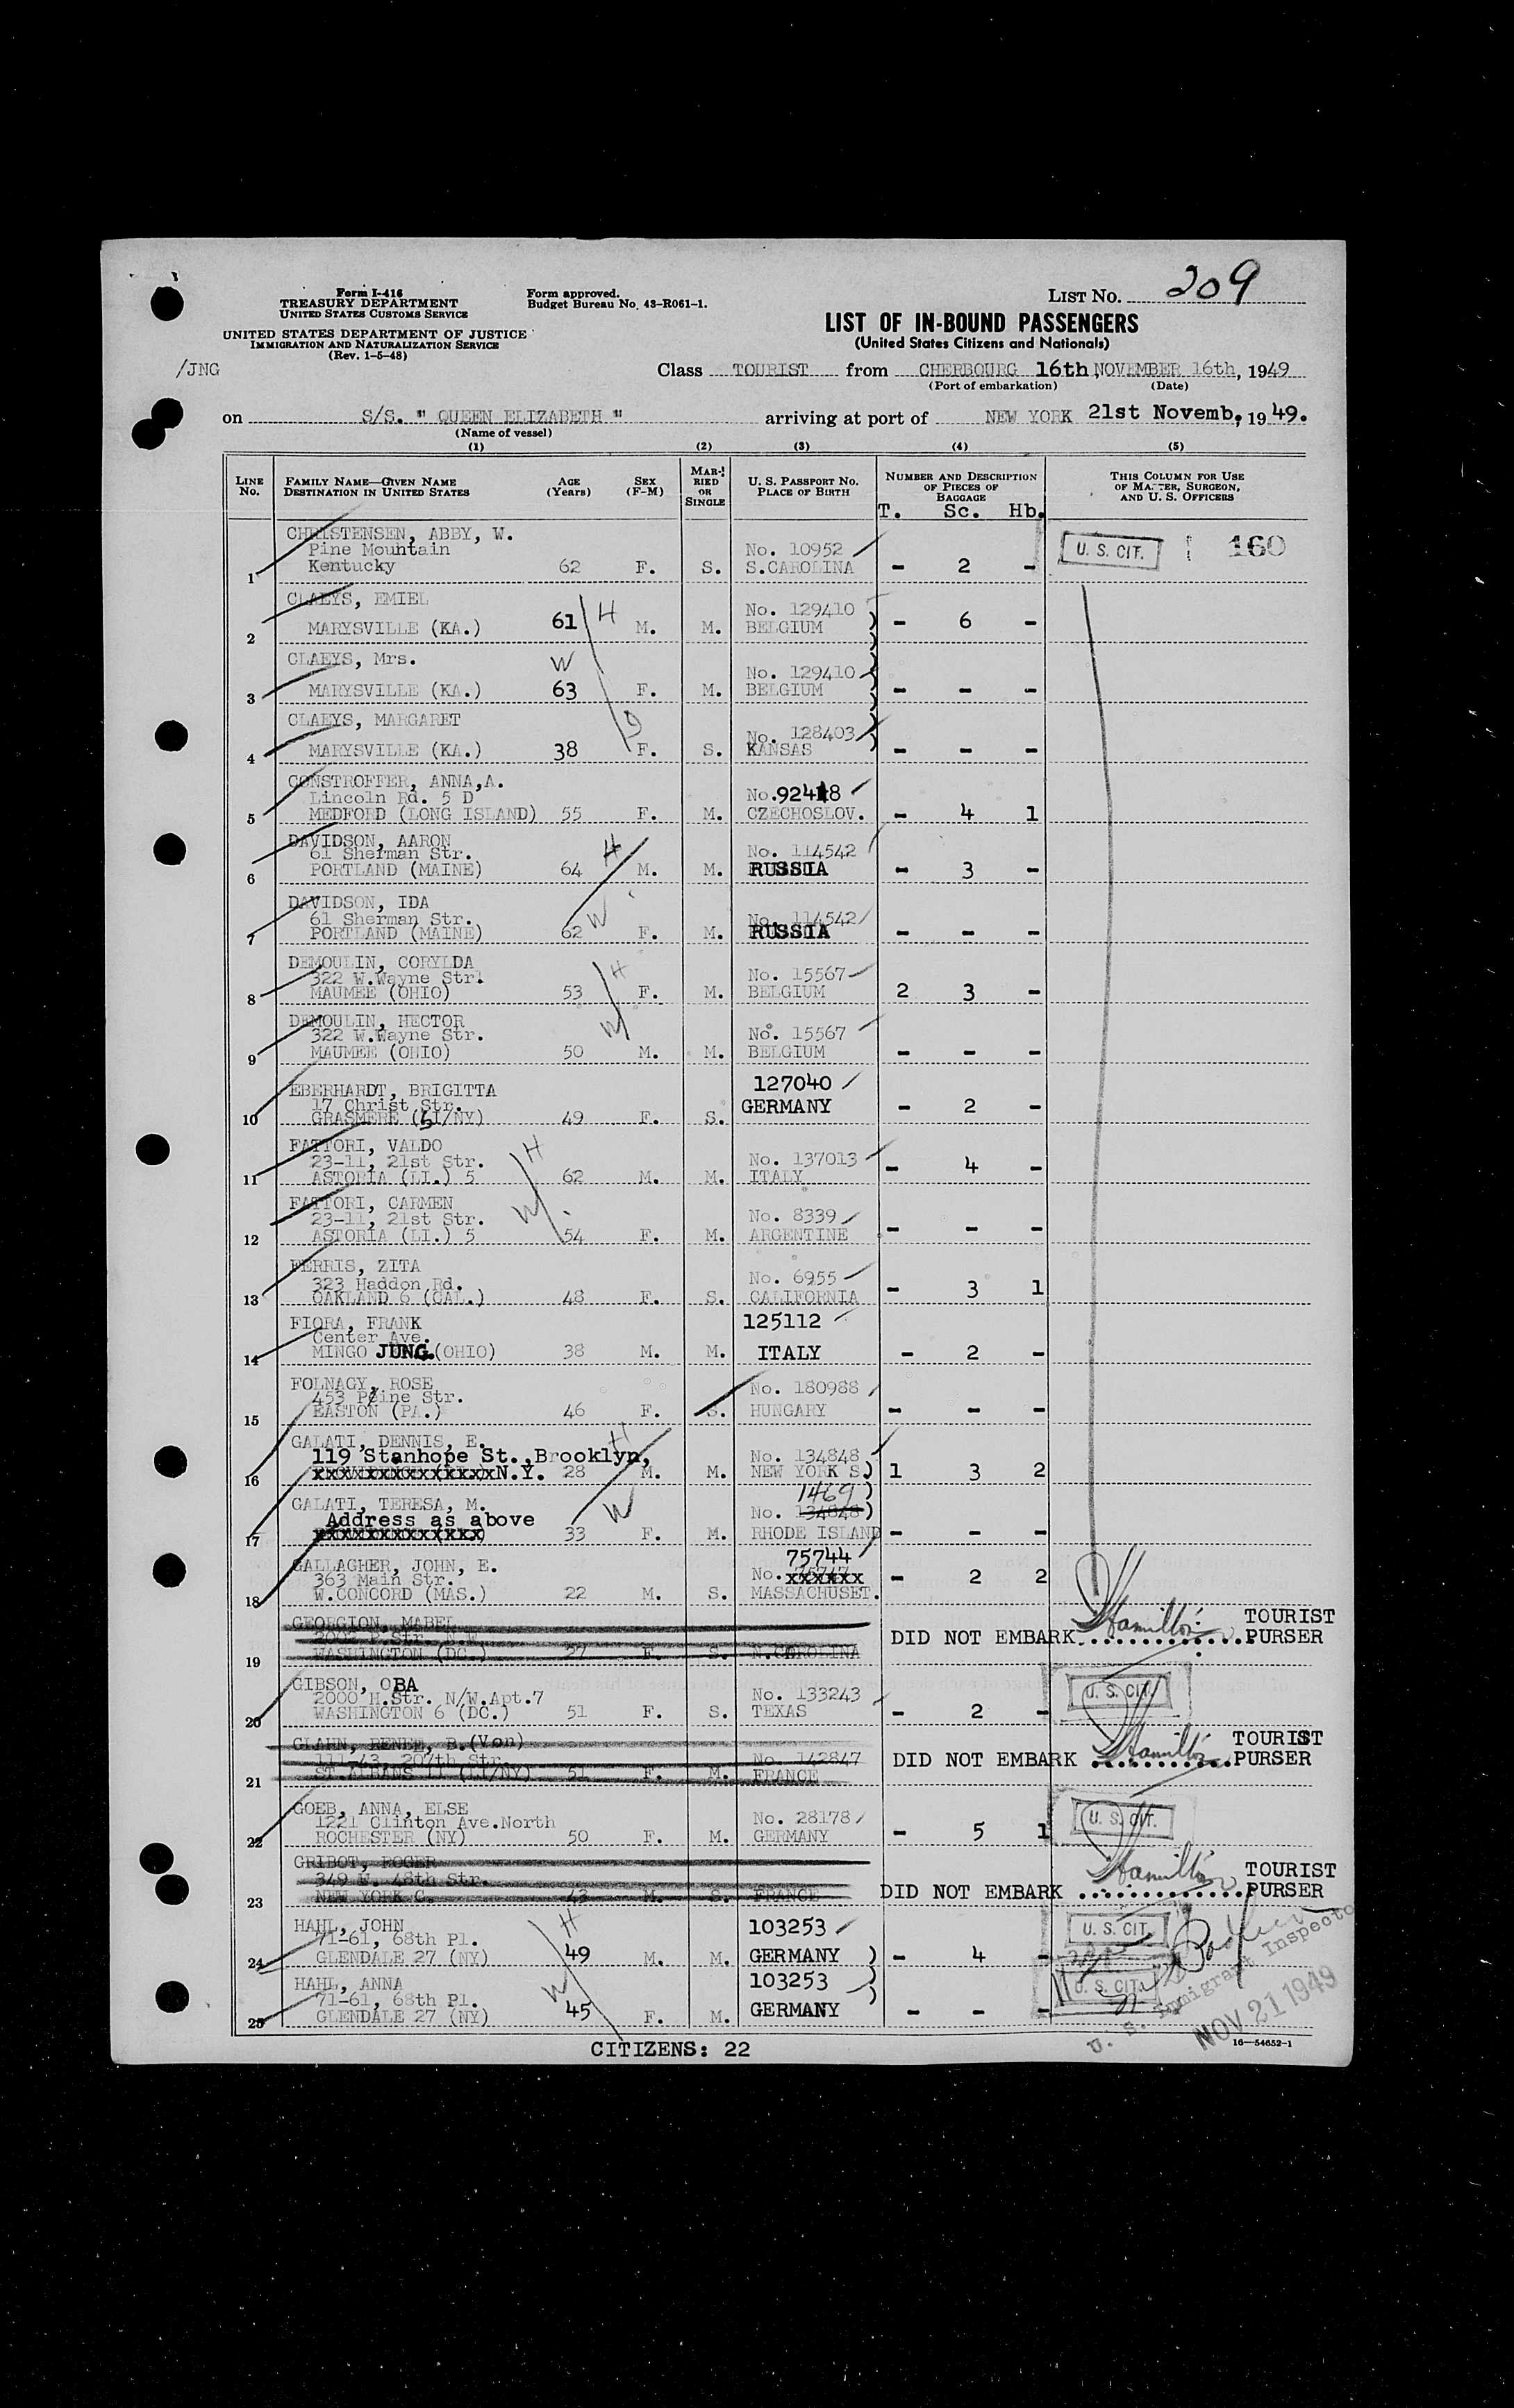 Form I-416
TREASURY DEPARTMENT
UNITED STATES CUSTOMS SERVICE
UNITED STATES DEPARTMENT OF JUSTICE
IMMIGRATION AND NATURALIZATION SERVICE
(Rev. 1-5-48)
/JNG
Form approved.
Budget Bureau No. 43-R061-1.
LIST NO. 209
LIST OF IN-BOUND PASSENGERS
(United States Citizens and Nationals)
Class TOURIST from CHERBOURG 16th, NOVEMBER 16th, 1949
(Port of embarkation) (Date)
on S/S. " QUEEN ELIZABETH " arriving at port of NEW YORK 21st Novemb, 1949.
(Name of vessel)
(1) (2) (3) (4) (5)
LINE NO.
FAMILY NAME—GIVEN NAME
DESTINATION IN UNITED STATES
AGE (Years)
SEX (F-M)
MARRIED OR SINGLE
U. S. PASSPORT NO.
PLACE OF BIRTH
NUMBER AND DESCRIPTION OF PIECES OF BAGGAGE
THIS COLUMN FOR USE OF MASTER, SURGEON, AND U. S. OFFICERS
T. Sc. Hb.
CHRISTENSEN, ABBY, W.
Pine Mountain No. 10952 U. S. CIT. 160
1 Kentucky 62 F. S. S.CAROLINA - 2 -
CLAEYS, EMIEL H No. 129410
2 MARYSVILLE (KA.) 61 M. M. BELGIUM ) - 6 -
CLAEYS, Mrs. W No. 129410
3 MARYSVILLE (KA.) 63 F. M. BELGIUM ) - - -
CLAEYS, MARGARET D No. 128403
4 MARYSVILLE (KA.) 38 F. S. KANSAS ) - - -
CONSTROFFER, ANNA,A.
Lincoln Rd. 5 D No.92418
5 MEDFORD (LONG ISLAND) 55 F. M. CZECHOSLOV. - 4 1
DAVIDSON, AARON H
61 Sherman Str. No. 114542
6 PORTLAND (MAINE) 64 M. M. RUSSIA - 3 -
DAVIDSON, IDA
61 Sherman Str. W No. 114542
7 PORTLAND (MAINE) 62 F. M. RUSSIA - - -
DEMOULIN, CORYLDA H
322 W.Wayne Str. No. 15567
8 MAUMEE (OHIO) 53 F. M. BELGIUM 2 3 -
DEMOULIN, HECTOR W
322 W.Wayne Str. No. 15567
9 MAUMEE (OHIO) 50 M. M. BELGIUM - - -
EBERHARDT, BRIGITTA 127040
17 Christ Str.
10 GRASMERE (SI/NY) 49 F. S. GERMANY - 2 -
FATTORI, VALDO H
23-11, 21st Str. No. 137013
11 ASTORIA (LI.) 5 62 M. M. ITALY - 4 -
FATTORI, CARMEN W
23-11, 21st Str. No. 8339
12 ASTORIA (LI.) 5 54 F. M. ARGENTINE - - -
FERRIS, ZITA
323 Haddon Rd. No. 6955
13 OAKLAND 6 (CAL.) 48 F. S. CALIFORNIA - 3 1
FIORA, FRANK 125112
Center Ave.
14 MINGO JUNC.(OHIO) 38 M. M. ITALY - 2 -
FOLNAGY, ROSE No. 180988
453 Paine Str.
15 EASTON (PA.) 46 F. S. HUNGARY - - -
GALATI, DENNIS, E. H
119 Stanhope St.,Brooklyn, No. 134848
16 xxxxxxxxxxxxxxN.Y. 28 M. M. NEW YORK S.) 1 3 2
GALATI, TERESA, M. W 1469 )
Address as above No. 134848)
17 xxxxxxxxxxxxx 33 F. M. RHODE ISLAND - - -
GALLAGHER, JOHN, E. 75744
363 Main Str. No. xxxxxx
18 W.CONCORD (MAS.) 22 M. S. MASSACHUSET. - 2 2
GEORGION, MABEL Hamilton TOURIST
DID NOT EMBARK.............PURSER
19 WASHINGTON (DC.) 27 F. S. N.CAROLINA
GIBSON, OBA U. S. CIT.
2000 H.Str. N/W.Apt.7 No. 133243
20 WASHINGTON 6 (DC.) 51 F. S. TEXAS - 2 -
GLAHN, RENEE, B.(Von) Hamilton TOURIST
111,43, 207th Str. No. 142847 DID NOT EMBARK ...........PURSER
21 ST.ALBANS 11 (LI/NY) 51 F. M. FRANCE
GOEB, ANNA, ELSE U. S. CIT.
1221 Clinton Ave.North No. 28178
22 ROCHESTER (NY) 50 F. M. GERMANY - 5 1
GRIBOT, ROGER Hamilton TOURIST
349 E. 48th Str. DID NOT EMBARK .............PURSER
23 NEW YORK C. 43 M. S. FRANCE
HAHL, JOHN H 103253 U. S. CIT.
71-61, 68th Pl.
24 GLENDALE 27 (NY) 49 M. M. GERMANY ) - 4 -
HAHL, ANNA W 103253 ) U. S. CIT.
71-61, 68th Pl.
25 GLENDALE 27 (NY) 45 F. M. GERMANY - - -
U. S. Immigrant Inspector
NOV 21 1949
CITIZENS: 22
16—54652-1